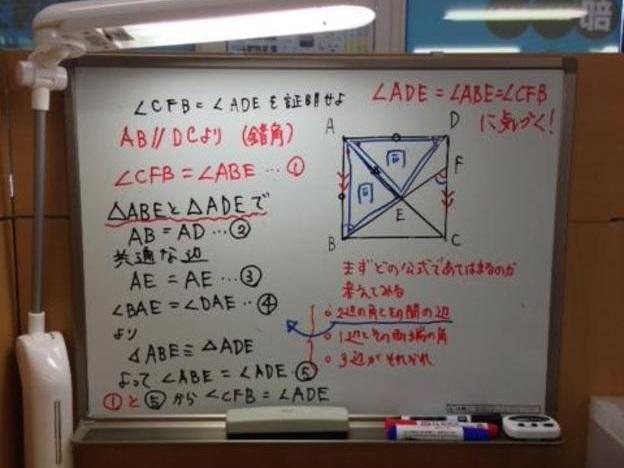 ∠CFB = ∠ADE を証明せよ
AB // DCより (錯角)
∠CFB = ∠ABE … ①
△ABEと△ADEで
AB = AD … ②
共通な辺
AE = AE … ③
∠BAE = ∠DAE … ④
より
△ABE ≡ △ADE
よって ∠ABE = ∠ADE ⑤
①と⑤から ∠CFB = ∠ADE
∠ADE = ∠ABE = ∠CFB
に気づく!
A
D
同
同
F
E
B
C
まずどの公式であてはまるのか
考えてみる
2辺の角とその間の辺
1辺とその両端の角
3辺がそれぞれ